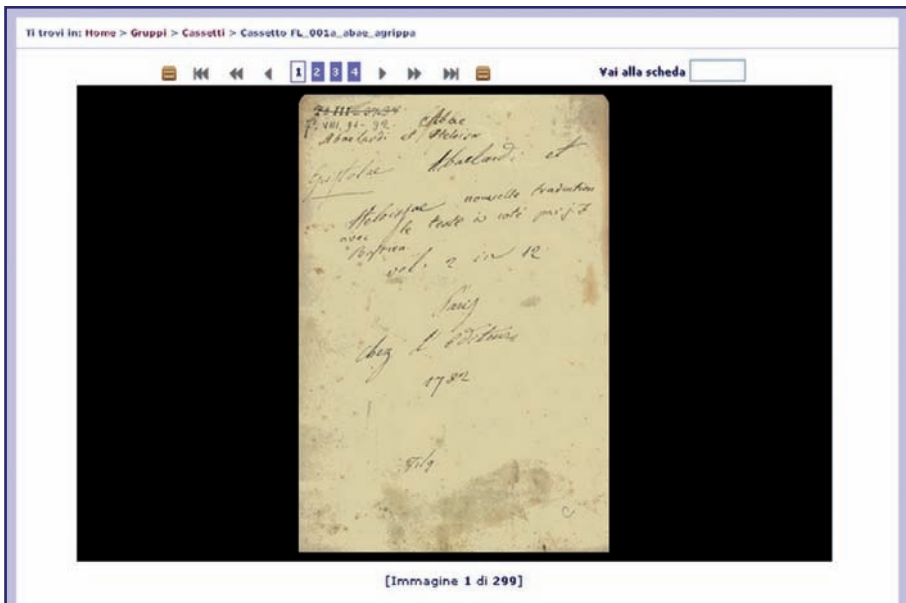 Ti trovi in: Home > Gruppi > Cassetti > Cassetto FL_001a_abae_agrippa
1 2 3 4
Vai alla scheda
VIII, 91-92. Abae
Abaelardi et Heloisa
Epistolae Abaelardi et
Heloissae nouvelle traduction
avec le texte à coté par J. F
vol. 2 in 12
Paris
chez l'Editeur
1782
Filg
C
[Immagine 1 di 299]